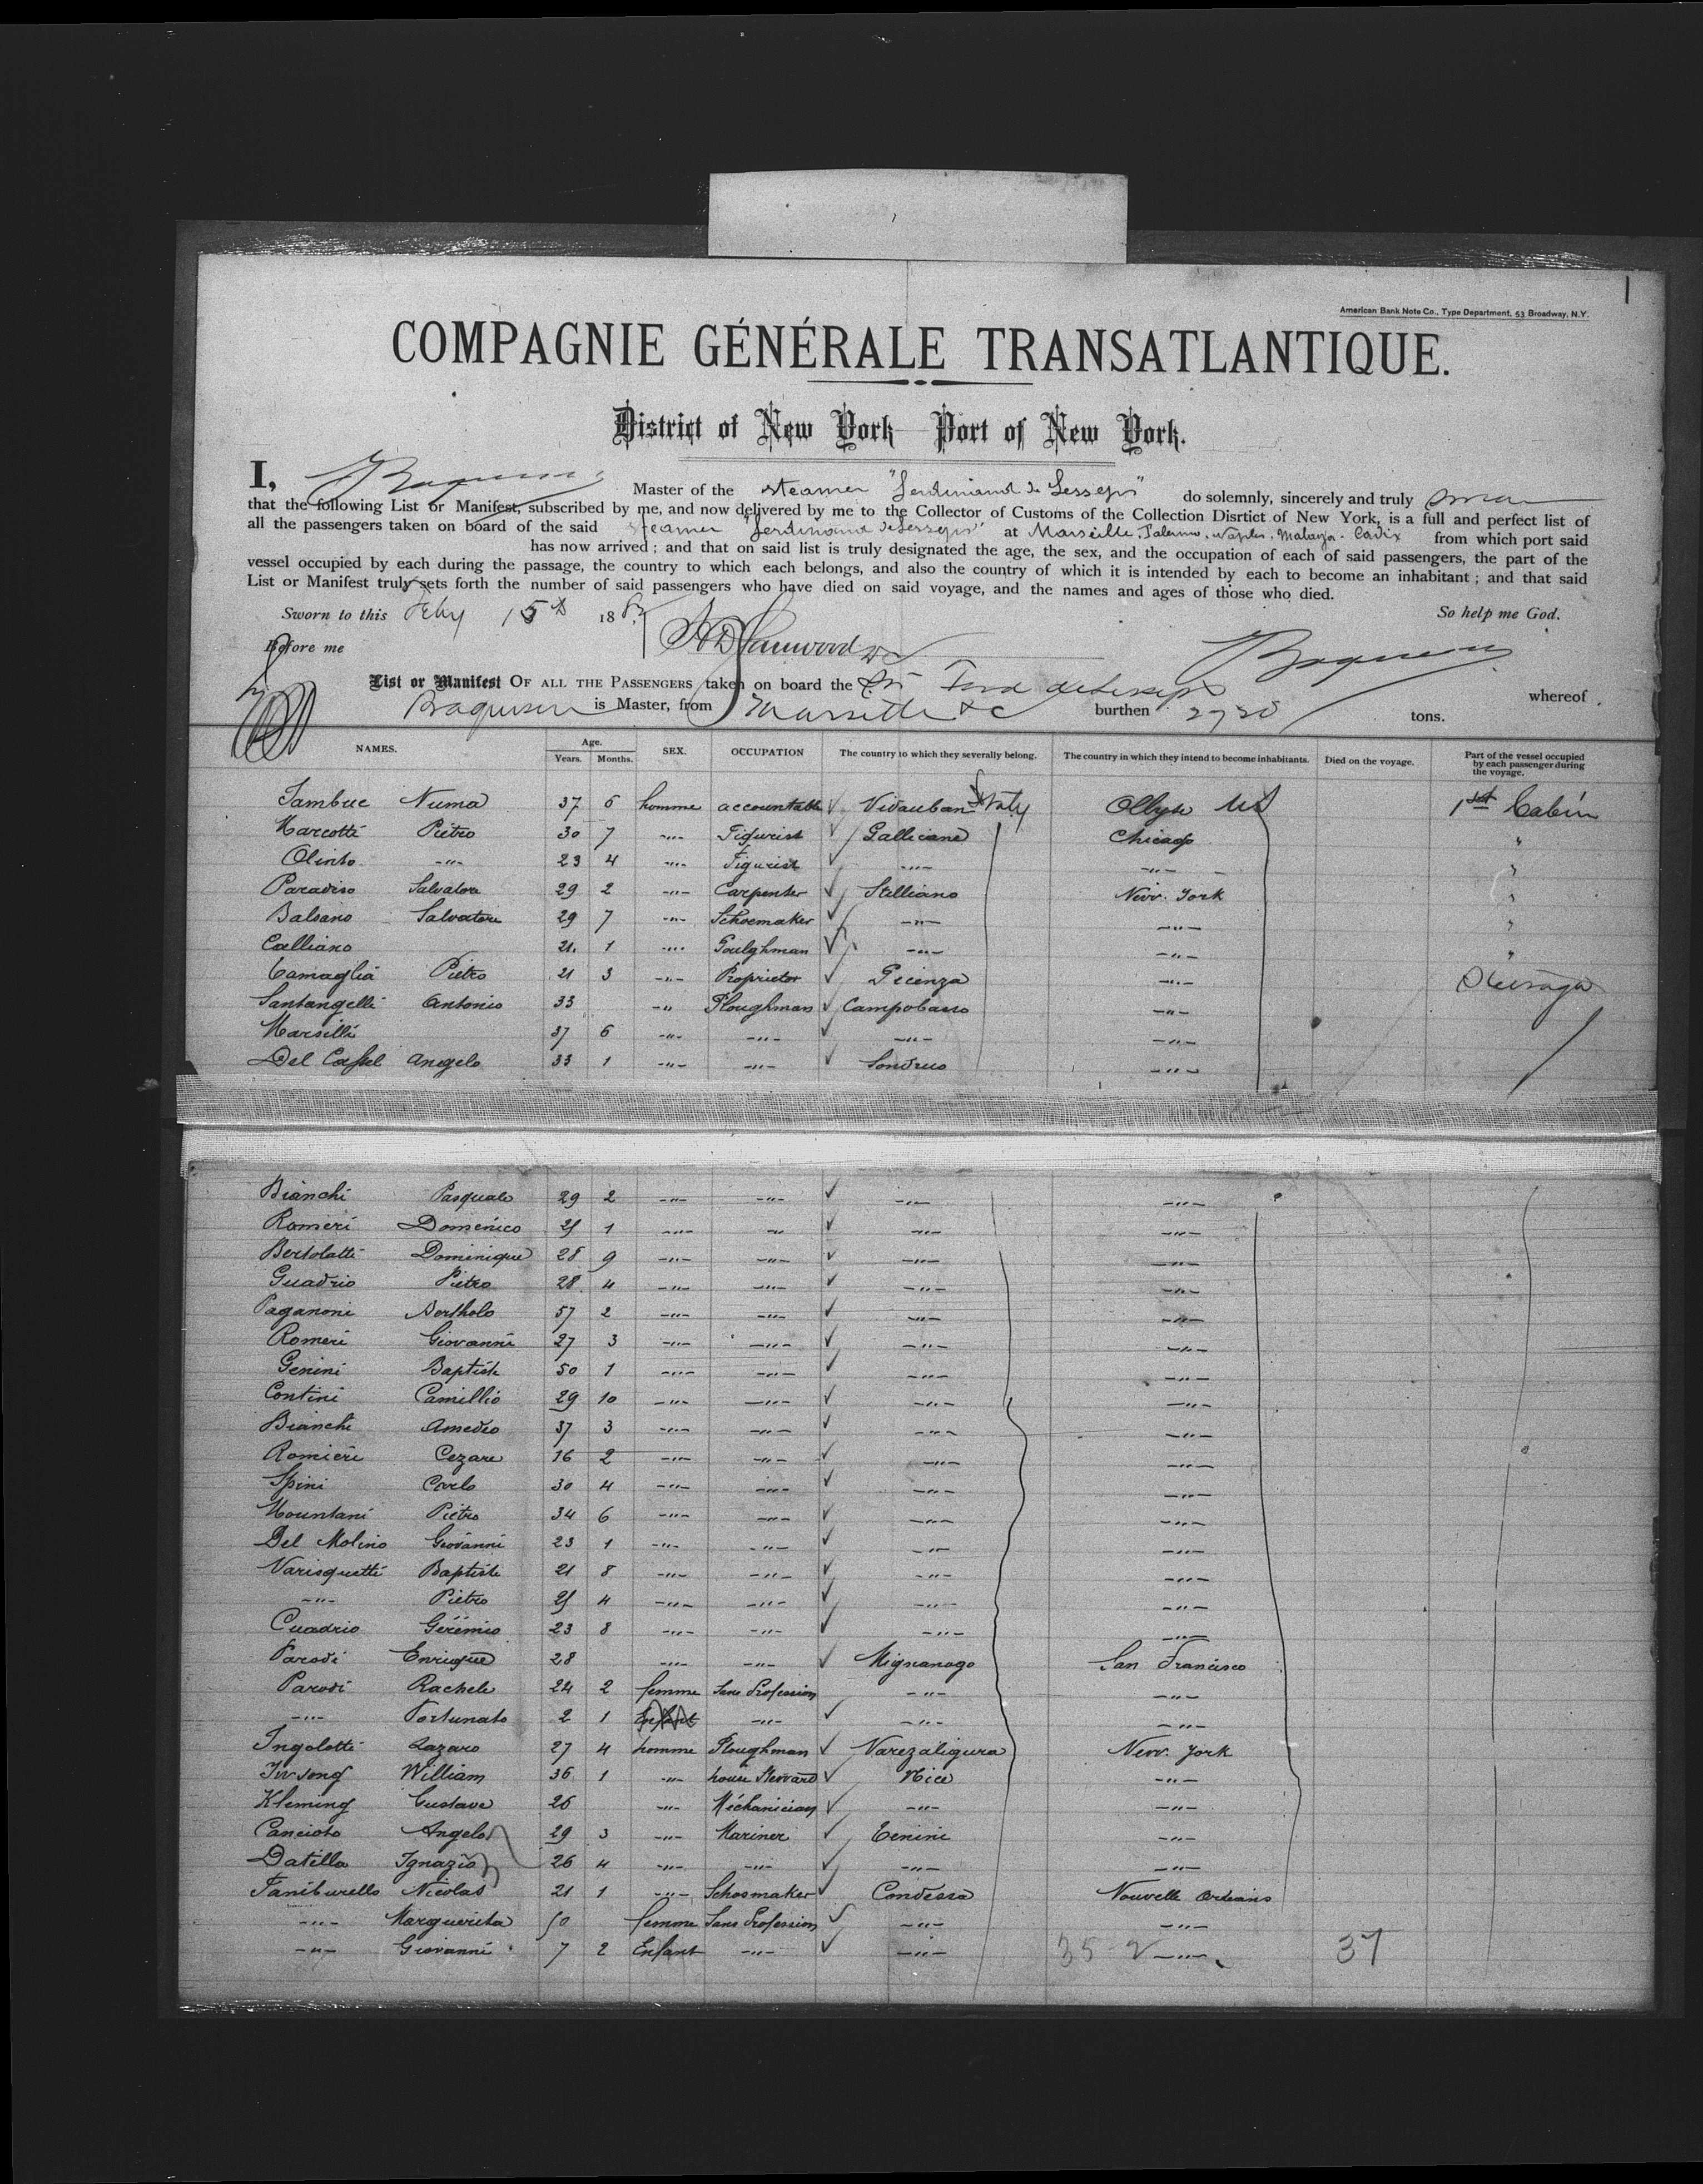 American Bank Note Co., Type Department, 53 Broadway, N.Y.
COMPAGNIE GÉNÉRALE TRANSATLANTIQUE.
District of New York Port of New York.
I, Master of the steamer "Ferdinand de Lesseps" do solemnly, sincerely and truly swear
that the following List or Manifest, subscribed by me, and now delivered by me to the Collector of Customs of the Collection Disrtict of New York, is a full and perfect list of
all the passengers taken on board of the said steamer "Ferdinand de Lesseps" at Marseille, Palermo, Naples, Malaga. Cadix from which port said
has now arrived; and that on said list is truly designated the age, the sex, and the occupation of each of said passengers, the part of the
vessel occupied by each during the passage, the country to which each belongs, and also the country of which it is intended by each to become an inhabitant; and that said
List or Manifest truly sets forth the number of said passengers who have died on said voyage, and the names and ages of those who died.
Sworn to this Feby 15th 188 So help me God.
Before me
List or Manifest OF ALL THE PASSENGERS taken on board the whereof
is Master, from Marseille &c burthen tons.
NAMES. Age. Years. Months. SEX. OCCUPATION The country to which they severally belong. The country in which they intend to become inhabitants. Died on the voyage. Part of the vessel occupied by each passenger during the voyage.
Jambuc Numa 37 6 homme accountable Vidauban Italy US 1st Cabin
Marcotti Pietro 30 7 -"- Figurist Gallicano Chicago "
Olinto -"- 23 4 -"- Figurist -"- -"- "
Paradiso Salvatore 29 2 -"- Carpenter Stilliano New. York "
Balsano Salvatore 29 7 -"- Schoemaker -"- -"- "
Calliano 21. 1 -"- Poulghman -"- -"- "
Camaglia Pietro 21 3 -"- Proprietor Picenza -"- Steerage
Santangelli Antonio 33 -"- Ploughman Campobasso -"-
Marsilli 37 6 -"- -"- -"- -"-
Del Angelo 33 1 -"- -"- Sondrio -"-
Bianchi Pasquale 29 2 -"- -"- -"- -"-
Romeri Domenico 25 1 -"- -"- -"- -"-
Bertolatti Dominique 28 9 -"- -"- -"- -"-
Guadrio Pietro 28 4 -"- -"- -"- -"-
Paganoni Bertholo 57 2 -"- -"- -"- -"-
Romeri Giovanni 27 3 -"- -"- -"- -"-
Genini Baptiste 50 1 -"- -"- -"- -"-
Contini Camillio 29 10 -"- -"- -"- -"-
Bianchi Amedeo 37 3 -"- -"- -"- -"-
Romieri Cezare 16 2 -"- -"- -"- -"-
Spini Carlo 30 4 -"- -"- -"- -"-
Mountani Pietro 34 6 -"- -"- -"- -"-
Del Molino Giovanni 23 1 -"- -"- -"- -"-
Varisquetti Baptiste 21 8 -"- -"- -"- -"-
-"- Pietro 25 4 -"- -"- -"- -"-
Cuadrio Gérémio 23 8 -"- -"- -"- -"-
Parodi Enrique 28 -"- -"- Mignanago San Francisco
Parodi Rachele 24 2 femme Sans Profession -"- -"-
-"- Fortunato 2 1 Enfant -"- -"- -"-
Ingolotti Lazaro 27 4 homme Ploughman Varezaligura New. York
William 36 1 -"- house Steward Nice -"-
Kleming Gustave 26 -"- Méchanician -"- -"-
Cancioto Angelo 29 3 -"- Mariner -"-
Datilla Ignazio 26 4 -"- -"- -"- -"-
Taniburello Nicolas 21 1 -"- Schosmaker Condessa Nouvelle Orleans
-"- Marguerita 50 femme Sans Profession -"- -"-
-"- Giovanni 7 2 Enfant -"- -"- 35 2 -"- 37